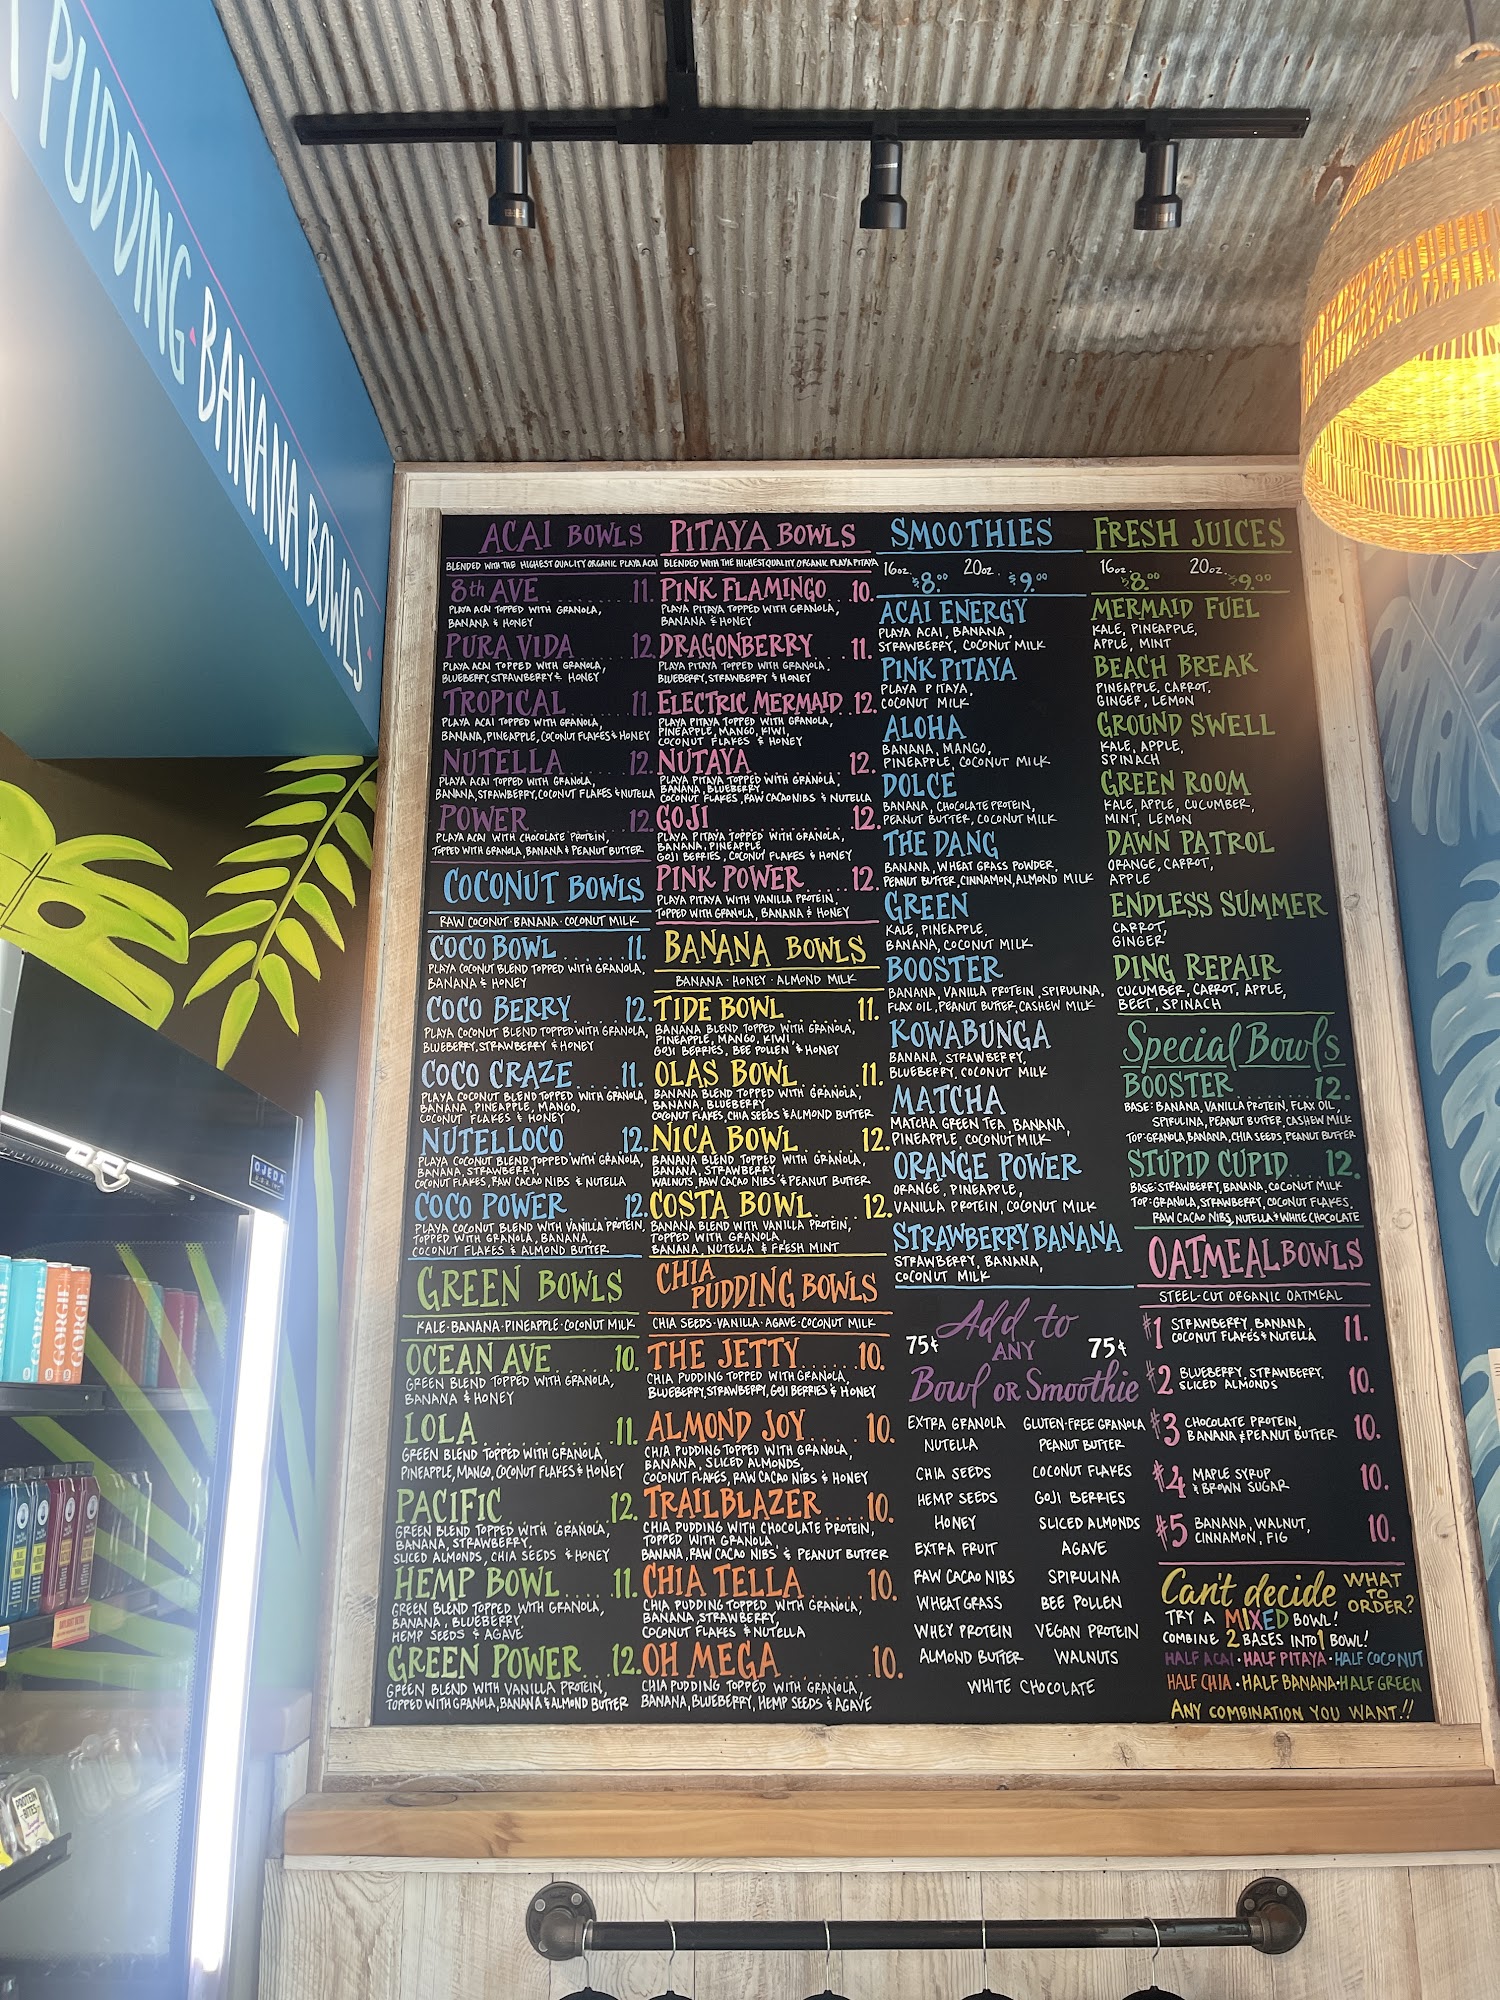 PUDDING · BANANA BOWLS ·
ACAI BOWLS
BLENDED WITH THE HIGHEST QUALITY ORGANIC PLAYA ACAI
8th AVE 11.
PLAYA ACAI TOPPED WITH GRANOLA,
BANANA & HONEY
PURA VIDA 12.
PLAYA ACAI TOPPED WITH GRANOLA,
BLUEBERRY, STRAWBERRY & HONEY
TROPICAL 11.
PLAYA ACAI TOPPED WITH GRANOLA,
BANANA, PINEAPPLE, COCONUT FLAKES & HONEY
NUTELLA 12.
PLAYA ACAI TOPPED WITH GRANOLA,
BANANA, STRAWBERRY, COCONUT FLAKES & NUTELLA
POWER 12.
PLAYA ACAI WITH CHOCOLATE PROTEIN,
TOPPED WITH GRANOLA, BANANA & PEANUT BUTTER
COCONUT BOWLS
RAW COCONUT · BANANA · COCONUT MILK
COCO BOWL 11.
PLAYA COCONUT BLEND TOPPED WITH GRANOLA,
BANANA & HONEY
COCO BERRY 12.
PLAYA COCONUT BLEND TOPPED WITH GRANOLA,
BLUEBERRY, STRAWBERRY & HONEY
COCO CRAZE 11.
PLAYA COCONUT BLEND TOPPED WITH GRANOLA,
BANANA, PINEAPPLE, MANGO,
COCONUT FLAKES & HONEY
NUTELLOCO 12.
PLAYA COCONUT BLEND TOPPED WITH GRANOLA,
BANANA, STRAWBERRY,
COCONUT FLAKES, RAW CACAO NIBS & NUTELLA
COCO POWER 12.
PLAYA COCONUT BLEND WITH VANILLA PROTEIN,
TOPPED WITH GRANOLA, BANANA,
COCONUT FLAKES & ALMOND BUTTER
GREEN BOWLS
KALE · BANANA · PINEAPPLE · COCONUT MILK
OCEAN AVE 10.
GREEN BLEND TOPPED WITH GRANOLA,
BANANA & HONEY
LOLA 11.
GREEN BLEND TOPPED WITH GRANOLA,
PINEAPPLE, MANGO, COCONUT FLAKES & HONEY
PACIFIC 12.
GREEN BLEND TOPPED WITH GRANOLA,
BANANA, STRAWBERRY,
SLICED ALMONDS, CHIA SEEDS & HONEY
HEMP BOWL 11.
GREEN BLEND TOPPED WITH GRANOLA,
BANANA, BLUEBERRY
HEMP SEEDS & AGAVE
GREEN POWER 12.
GREEN BLEND WITH VANILLA PROTEIN,
TOPPED WITH GRANOLA, BANANA & ALMOND BUTTER
PITAYA BOWLS
BLENDED WITH THE HIGHEST QUALITY ORGANIC PLAYA PITAYA
PINK FLAMINGO 10.
PLAYA PITAYA TOPPED WITH GRANOLA,
BANANA & HONEY
DRAGONBERRY 11.
PLAYA PITAYA TOPPED WITH GRANOLA,
BLUEBERRY, STRAWBERRY & HONEY
ELECTRIC MERMAID 12.
PLAYA PITAYA TOPPED WITH GRANOLA,
PINEAPPLE, MANGO, KIWI,
COCONUT FLAKES & HONEY
NUTAYA 12.
PLAYA PITAYA TOPPED WITH GRANOLA,
BANANA, BLUEBERRY,
COCONUT FLAKES, RAW CACAO NIBS & NUTELLA
GOJI 12.
PLAYA PITAYA TOPPED WITH GRANOLA,
BANANA, PINEAPPLE
GOJI BERRIES, COCONUT FLAKES & HONEY
PINK POWER 12.
PLAYA PITAYA WITH VANILLA PROTEIN,
TOPPED WITH GRANOLA, BANANA & HONEY
BANANA BOWLS
BANANA · HONEY · ALMOND MILK
TIDE BOWL 11.
BANANA BLEND TOPPED WITH GRANOLA,
PINEAPPLE, MANGO, KIWI,
GOJI BERRIES, BEE POLLEN & HONEY
OLAS BOWL 11.
BANANA BLEND TOPPED WITH GRANOLA,
BANANA, BLUEBERRY
COCONUT FLAKES, CHIA SEEDS & ALMOND BUTTER
NICA BOWL 12.
BANANA BLEND TOPPED WITH GRANOLA,
BANANA, STRAWBERRY
WALNUTS, RAW CACAO NIBS & PEANUT BUTTER
COSTA BOWL 12.
BANANA BLEND WITH VANILLA PROTEIN,
TOPPED WITH GRANOLA,
BANANA, NUTELLA & FRESH MINT
CHIA PUDDING BOWLS
CHIA SEEDS · VANILLA · AGAVE · COCONUT MILK
THE JETTY 10.
CHIA PUDDING TOPPED WITH GRANOLA,
BLUEBERRY, STRAWBERRY, GOJI BERRIES & HONEY
ALMOND JOY 10.
CHIA PUDDING TOPPED WITH GRANOLA,
BANANA, SLICED ALMONDS,
COCONUT FLAKES, RAW CACAO NIBS & HONEY
TRAILBLAZER 10.
CHIA PUDDING WITH CHOCOLATE PROTEIN,
TOPPED WITH GRANOLA,
BANANA, RAW CACAO NIBS & PEANUT BUTTER
CHIA TELLA 10.
CHIA PUDDING TOPPED WITH GRANOLA,
BANANA, STRAWBERRY,
COCONUT FLAKES & NUTELLA
OH MEGA 10.
CHIA PUDDING TOPPED WITH GRANOLA,
BANANA, BLUEBERRY, HEMP SEEDS & AGAVE
SMOOTHIES
16oz. $8.00 20oz. $9.00
ACAI ENERGY
PLAYA ACAI, BANANA,
STRAWBERRY, COCONUT MILK
PINK PITAYA
PLAYA PITAYA,
COCONUT MILK
ALOHA
BANANA, MANGO,
PINEAPPLE, COCONUT MILK
DOLCE
BANANA, CHOCOLATE PROTEIN,
PEANUT BUTTER, COCONUT MILK
THE DANG
BANANA, WHEAT GRASS POWDER,
PEANUT BUTTER, CINNAMON, ALMOND MILK
GREEN
KALE, PINEAPPLE,
BANANA, COCONUT MILK
BOOSTER
BANANA, VANILLA PROTEIN, SPIRULINA,
FLAX OIL, PEANUT BUTTER, CASHEW MILK
KOWABUNGA
BANANA, STRAWBERRY,
BLUEBERRY, COCONUT MILK
MATCHA
MATCHA GREEN TEA, BANANA,
PINEAPPLE, COCONUT MILK
ORANGE POWER
ORANGE, PINEAPPLE,
VANILLA PROTEIN, COCONUT MILK
STRAWBERRY BANANA
STRAWBERRY, BANANA,
COCONUT MILK
Add to
75¢ ANY 75¢
Bowl OR Smoothie
EXTRA GRANOLA GLUTEN-FREE GRANOLA
NUTELLA PEANUT BUTTER
CHIA SEEDS COCONUT FLAKES
HEMP SEEDS GOJI BERRIES
HONEY SLICED ALMONDS
EXTRA FRUIT AGAVE
RAW CACAO NIBS SPIRULINA
WHEATGRASS BEE POLLEN
WHEY PROTEIN VEGAN PROTEIN
ALMOND BUTTER WALNUTS
WHITE CHOCOLATE
FRESH JUICES
16oz. $8.00 20oz. $9.00
MERMAID FUEL
KALE, PINEAPPLE,
APPLE, MINT
BEACH BREAK
PINEAPPLE, CARROT,
GINGER, LEMON
GROUND SWELL
KALE, APPLE,
SPINACH
GREEN ROOM
KALE, APPLE, CUCUMBER,
MINT, LEMON
DAWN PATROL
ORANGE, CARROT,
APPLE
ENDLESS SUMMER
CARROT,
GINGER
DING REPAIR
CUCUMBER, CARROT, APPLE,
BEET, SPINACH
Special Bowls
BOOSTER 12.
BASE: BANANA, VANILLA PROTEIN, FLAX OIL,
SPIRULINA, PEANUT BUTTER, CASHEW MILK
TOP: GRANOLA, BANANA, CHIA SEEDS, PEANUT BUTTER
STUPID CUPID 12.
BASE: STRAWBERRY, BANANA, COCONUT MILK
TOP: GRANOLA, STRAWBERRY, COCONUT FLAKES,
RAW CACAO NIBS, NUTELLA & WHITE CHOCOLATE
OATMEAL BOWLS
STEEL-CUT ORGANIC OATMEAL
#1 STRAWBERRY, BANANA, 11.
COCONUT FLAKES & NUTELLA
#2 BLUEBERRY, STRAWBERRY, 10.
SLICED ALMONDS
#3 CHOCOLATE PROTEIN, 10.
BANANA & PEANUT BUTTER
#4 MAPLE SYRUP 10.
& BROWN SUGAR
#5 BANANA, WALNUT, 10.
CINNAMON, FIG
Can't decide WHAT TO ORDER?
TRY A MIXED BOWL!
COMBINE 2 BASES INTO 1 BOWL!
HALF ACAI · HALF PITAYA · HALF COCONUT
HALF CHIA · HALF BANANA · HALF GREEN
ANY COMBINATION YOU WANT!!
OJEDA
GORGIE
GORGIE
PROTEIN
BITES